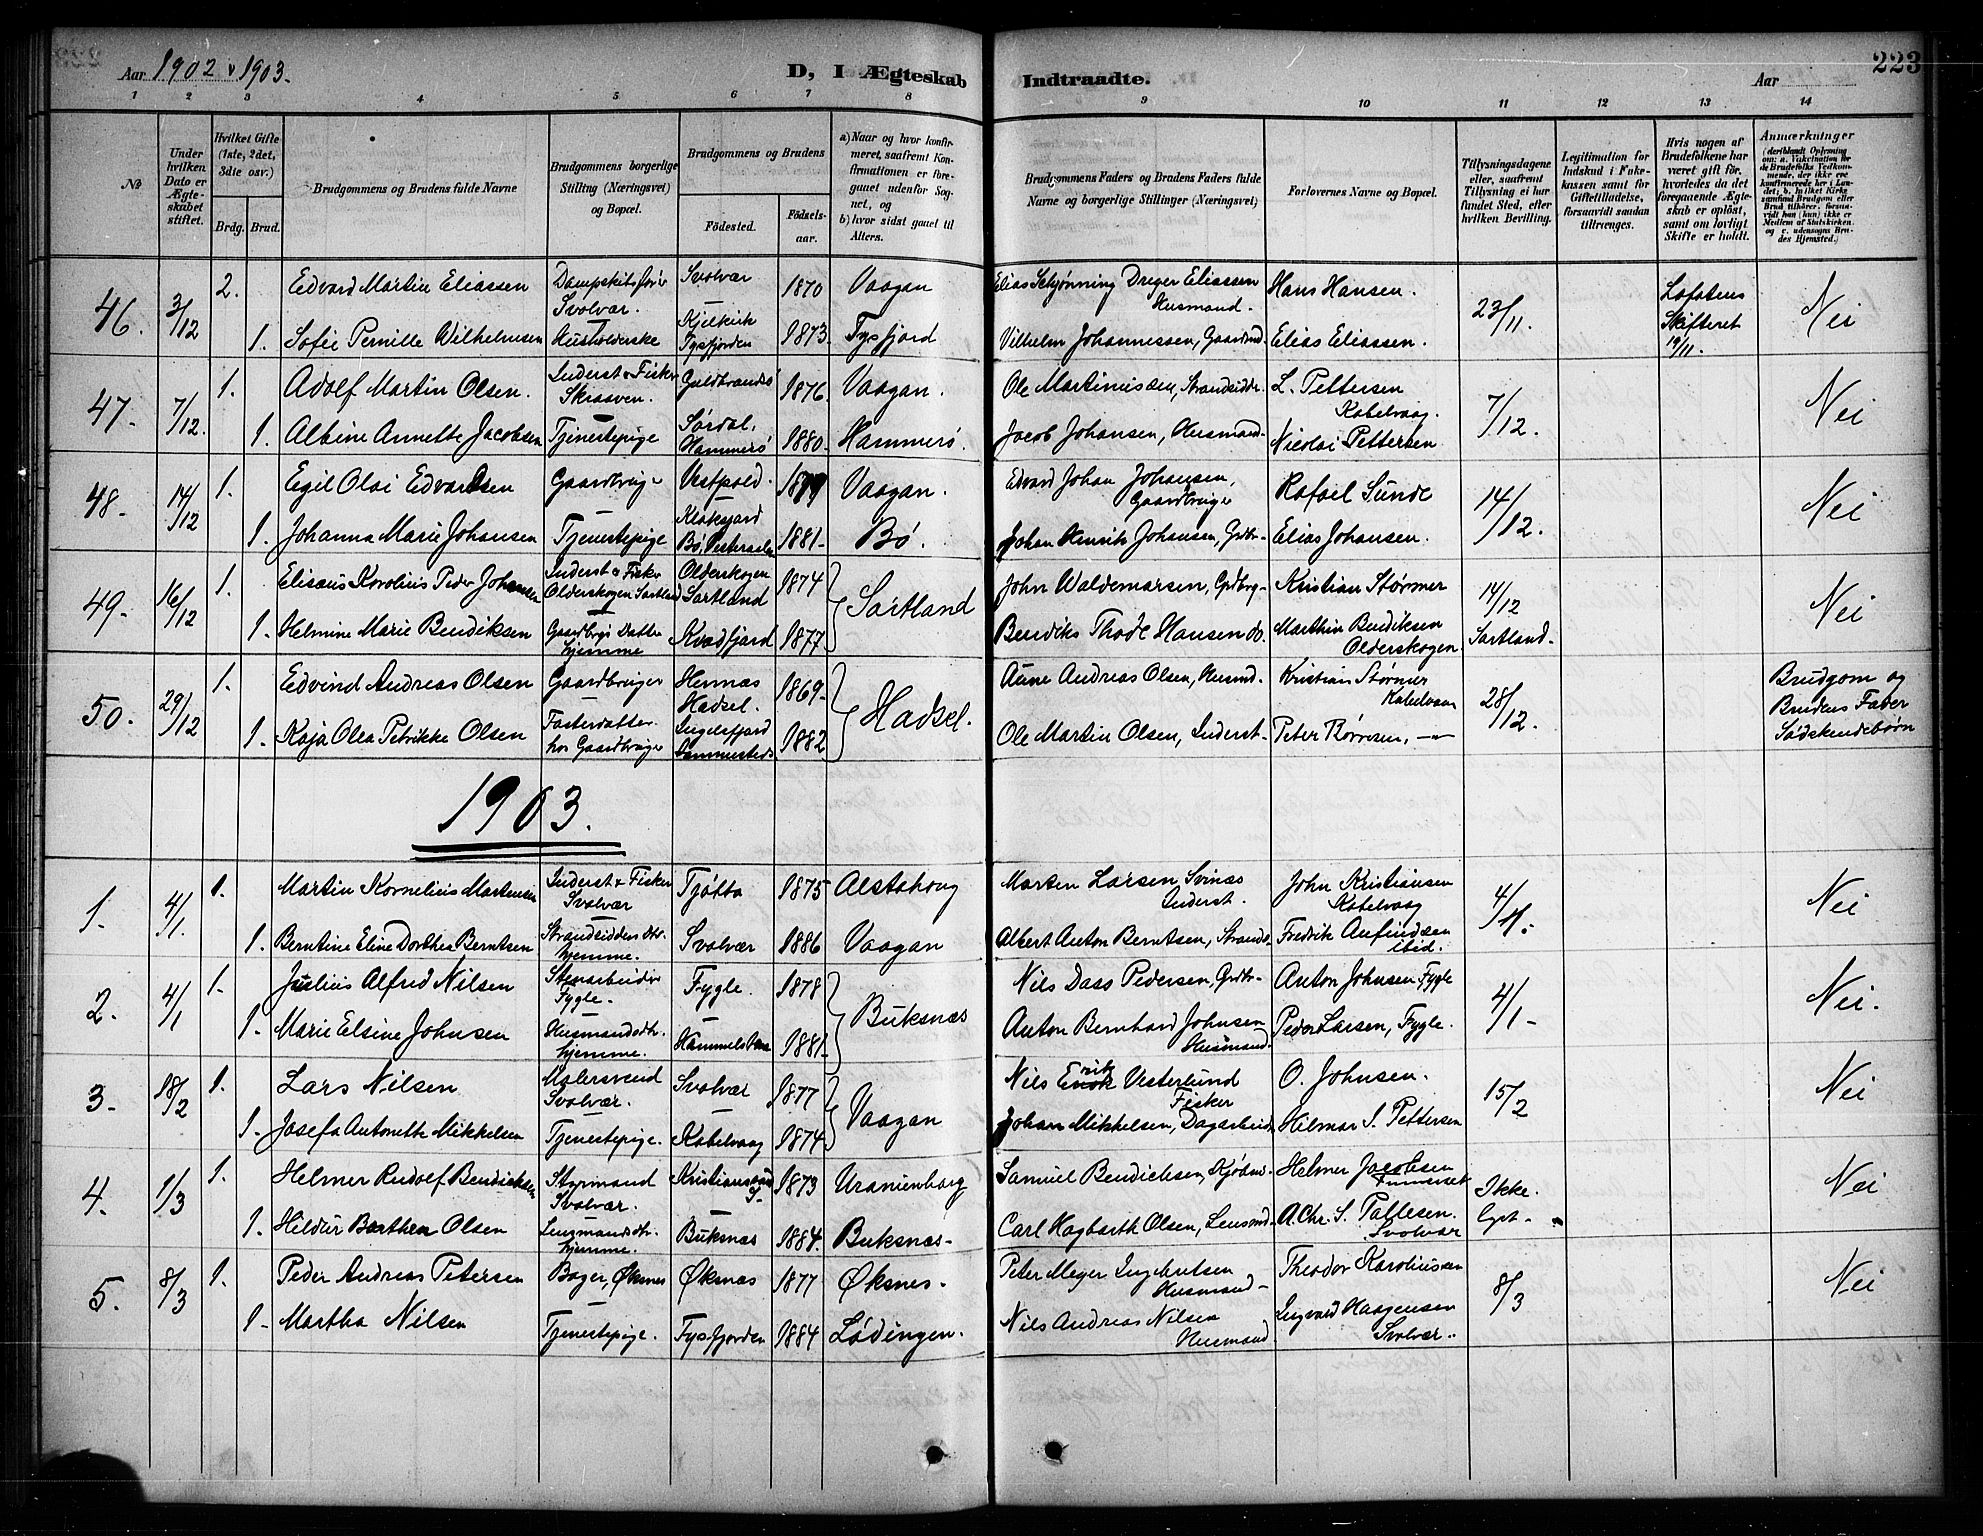 Aar 1902 & 1903.
D, I Ægteskab Indtraadte.
Aar
223
1 2 3 4 5 6 7 8 9 10 11 12 13 14
№
Under hvilken Dato er Ægteskabet stiftet.
Hvilket Gifte (1ste, 2det, 3die osv.)
Brdg. Brud.
Brudgommens og Brudens fulde Navne
Brudgommens borgerlige Stilling (Næringsvei) og Bopæl.
Brudgommens og Brudens
Fødested.
Fødselsaar.
a) Naar og hvor konfirmeret, saafremt Konfirmationen er foregaaet udenfor Sognet, og
b) hvor sidst gaaet til Alters.
Brudgommens Faders og Brudens Faders fulde Navne og borgerlige Stillinger (Næringsvei)
Forlovernes Navne og Bopæl.
Tillysningsdagene eller, saafremt Tillysning ei har fundet Sted, efter hvilken Bevilling.
Legitimation for Indskud i Enkekassen samt for Giftetilladelse, forsaavidt saadan tiltrænges.
Hvis nogen af Brudefolkene har været gift før, hvorledes da det foregaaende Ægteskab er opløst, samt om lovligt Skifte er holdt.
Anmærkninger (deriblandt Oplysning om: a. Vakcination for de Brudefolks Vedkommende, der ikke ere konfirmerede her i Landet; b. hvilket Kirkesamfund Brudgom eller Brud tilhører, forsaavidt han (hun) ikke er Medlem af Statskirken og c. udensogns Brudes Hjemsted.)
46. 3/12 2. Edvard Martin Eliassen Dampskibsfører Svolvær. Svolvær 1870 Vaagan Elias Schjønning Dreyer Eliassen Husmand. Hans Hansen. 23/11. Lofotens Skifteret 19/11. Nei
1. Sofie Pernille Wilhelmsen Husholderske Kjelkvik Tysfjorden 1873. Tysfjord Vilhelm Johannessen, Gaardmd. Elias Eliassen.
47. 7/12. 1. Adolf Martin Olsen. Inderst & Fisker Skraaven. Guldbrandsø 1876. Vaagan. Ole Martinussen, Strandsidder L. Pettersen Kabelvaag. 7/12. Nei
1. Albine Annette Jacobsen Tjenestepige Sørdal, Hammerø 1880. Hammerø. Jacob Johansen, Husmand. Nicolai Pettersen
48. 14/12 1. Egil Olai Edvardsen Gaardbruger Vestpold. 1879 Vaagan. Edvard Johan Johansen, Gaardbruger Rafael Sunde 14/12. Nei
1. Johanna Marie Johansen Tjenestepige Klaksjord Bø, Vesteraalen 1881- Bø. Johan Henrik Johansen, Grdbr- Elias Johansen.
49. 16/12 1. Elisæus Korolius Peder Johansen Inderst & Fisker Olderskogen Sortland Olderskogen Sortland 1874 Sortland John Waldemarsen, Grdbrg- Kristian Størmer 14/12 Sortland. Nei
1. Helmine Marie Bendiksen Gaardbrgs Datter hjemme Kvædfjord 1877 Bendiks Thode Hansen do. Marthin Bendiksen Olderskogen
50. 29/12 1. Edvind Andreas Olsen Gaardbruger Hennæs Hadsel. 1869- Hadsel. Aune Andreas Olsen, Husmd. Kristian Størmer Kabelvaag 28/12. Brudgom og Brudens Fader Sødskendebørn
1. Kaja Olea Petrikke Olsen Fosterdatter hos Gaardbruger Ingelsfjord Sammesteds 1882 Ole Martin Olsen, Inderst- Peter Børresen, —"—
1903.
1. 4/1. 1. Martin Kornelius Martensen Inderst & Fisker Svolvær Tjøtta 1875 Alstahoug Morten Larsen Svinæs Inderst. John Kristiansen Kabelvaag 4/1. Nei
1. Berntine Eline Dorthea Berntsen Strandsidders dtr. hjemme. Svolvær 1886 Vaagan Albert Anton Berntsen, Strands. Fredrik Anfindsen ibid.
2. 4/1 1. Julius Alfred Nilsen Stenarbeider Fygle. Fygle. 1878 Buksnæs Nils Dass Pedersen, Grdbr- Anton Johnsen, Fygle 4/1- Nei.
1. Marie Elsine Johnsen Husmandsdtr. hjemme. 1881- Anton Bernhard Johnsen Husmand. Peder Larsen, Fygle.
3. 18/2 1. Lars Nilsen Malersvend Svolvær. Svolvær 1877 Vaagan Nils Erik Vesterlund Fisker O. Johnsen. 15/2 Nei
1. Josefa Antonette Mikkelsen Tjenestepige. Kabelvaag 1874 Johan Mikkelsen, Dagarbeid. Hilmar S. Pettersen
4. 1/3 1. Helmer Rudolf Bendichsen Styrmand Svolvær. Kristianssund 1873 Uranienborg Samuel Bendichsen, Kjøbm- Helmer Jacobsen Ikke lyst- Nei
1. Hildur Barthea Olsen Lensmandsdtr. hjemme. Buksnæs 1884. Buksnæs- Carl Hagbarth Olsen, Lensmd. A. Chr. S. Pallesen. Svolvær
5. 8/3 1. Peder Andreas Petersen Bager, Øksnes Øksnæs 1877 Øksnes- Peter Meyer Ingebrigtsen Husmand- Theodor Karoliussen 8/3 Nei
1- Martha Nilsen Tjenestepige. Tysfjorden 1884 Lødingen. Nils Andreas Nilsen Husmand Ingvard Haagensen Svolvær.